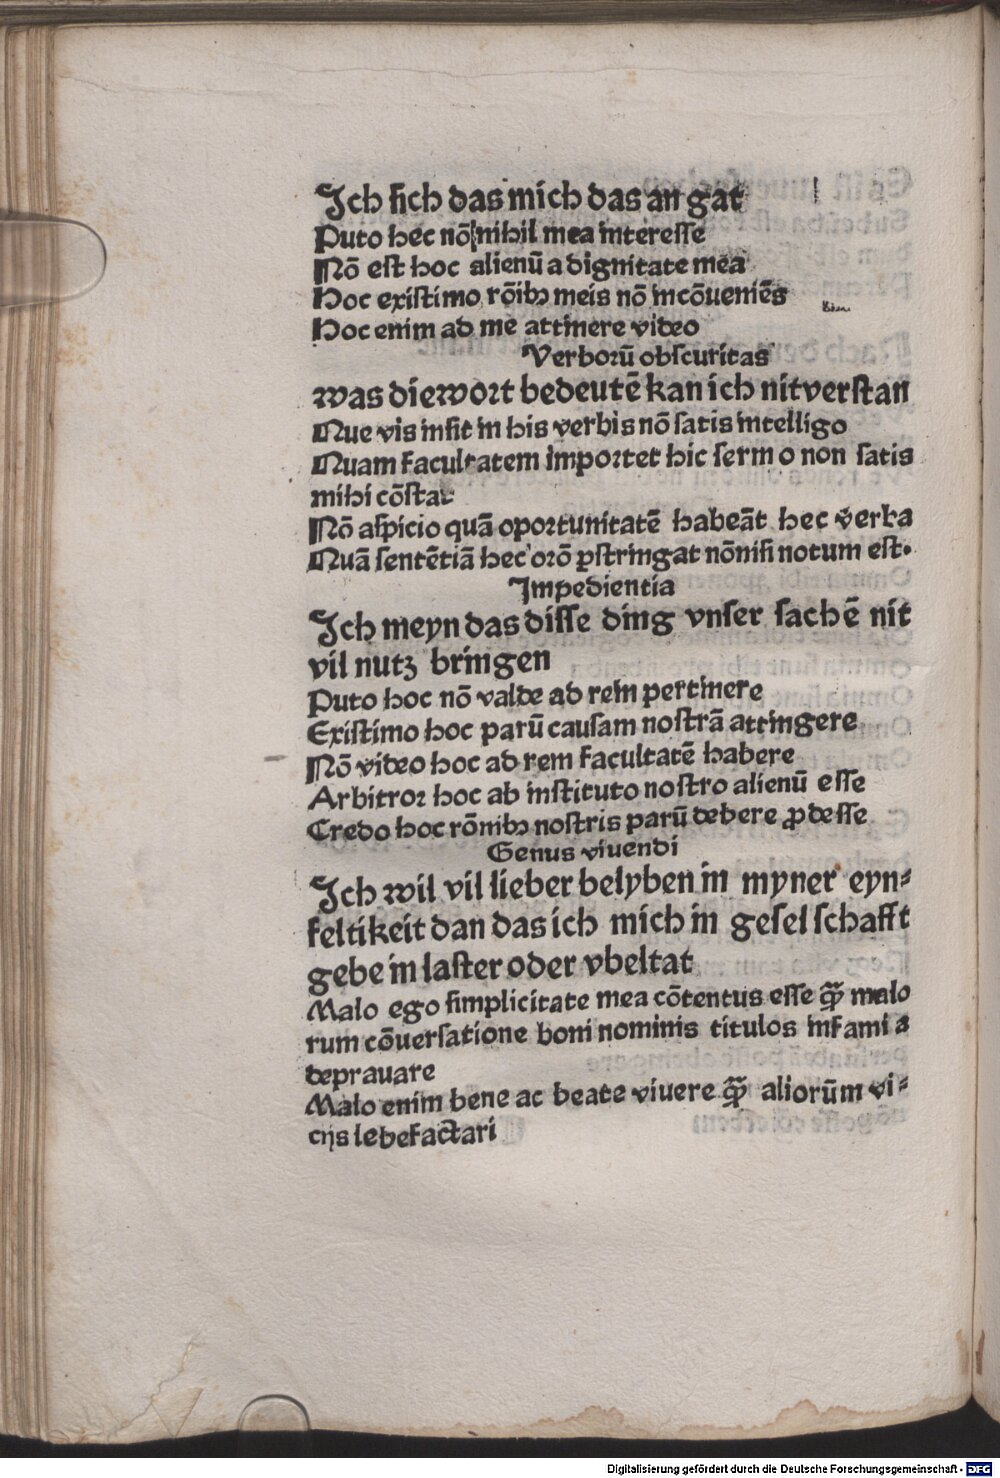 Ich sich das mich das an gat
Puto hec nō nihil mea interesse
Nō est hoc alienū a dignitate mea
Hoc existimo rōibꝫ meis nō incōueniēs
Hoc enim ad me attinere video
Verborū obscuritas
was die wort bedeutē kan ich nit verstan
Que vis insit in his verbis nō satis intelligo
Quam facultatem importet hic serm o non satis
mihi cōstat
Nō aspicio quā oportunitatē habeāt hec v̄erba
Quā sentētiā hec orō ꝑstringat nōnisi notum est.
Impedientia
Ich meyn das disse ding vnser sachē nit
vil nutz bringen
Puto hoc nō valde ad rem pertinere
Existimo hoc parū causam nostrā attingere
Nō video hoc ad rem facultatē habere
Arbitror hoc ab instituto nostro alienū esse
Credo hoc rōnibꝫ nostris parū debere ꝓdesse
Genus viuendi
Ich wil vil lieber belyben in myner eyn⸗
feltikeit dan das ich mich in gesel schafft
gebe in laster oder vbeltat
Malo ego simplicitate mea cōtentus esse qͣꝫ malo
rum cōuersatione boni nominis titulos infami a
deprauare
Malo enim bene ac beate viuere qͣꝫ aliorūm vi⸗
cijs lebefactari
Digitalisierung gefördert durch die Deutsche Forschungsgemeinschaft - DFG